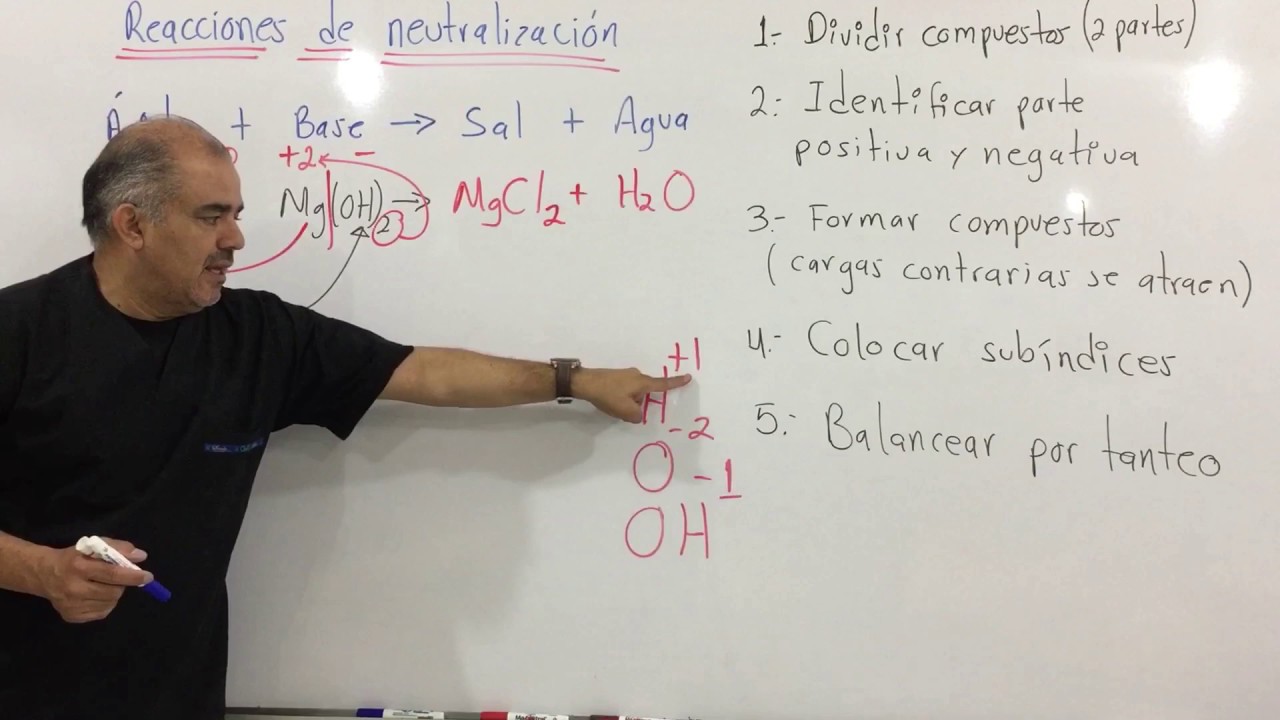 Reacciones de neutralización
+ Base → Sal + Agua
+2 -
Mg(OH)2 → MgCl2 + H2O
+1
H
-2
O
-1
OH
1.- Dividir compuestos (2 partes)
2.- Identificar parte
positiva y negativa
3.- Formar compuestos
(cargas contrarias se atraen)
4.- Colocar subíndices
5.- Balancear por tanteo